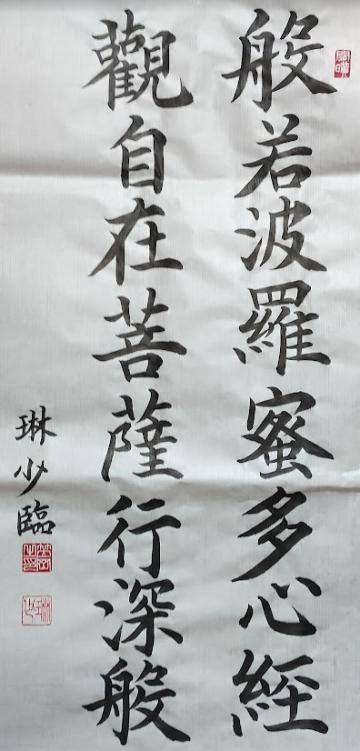 般若波羅蜜多心經
觀自在菩薩行深般
琳少臨